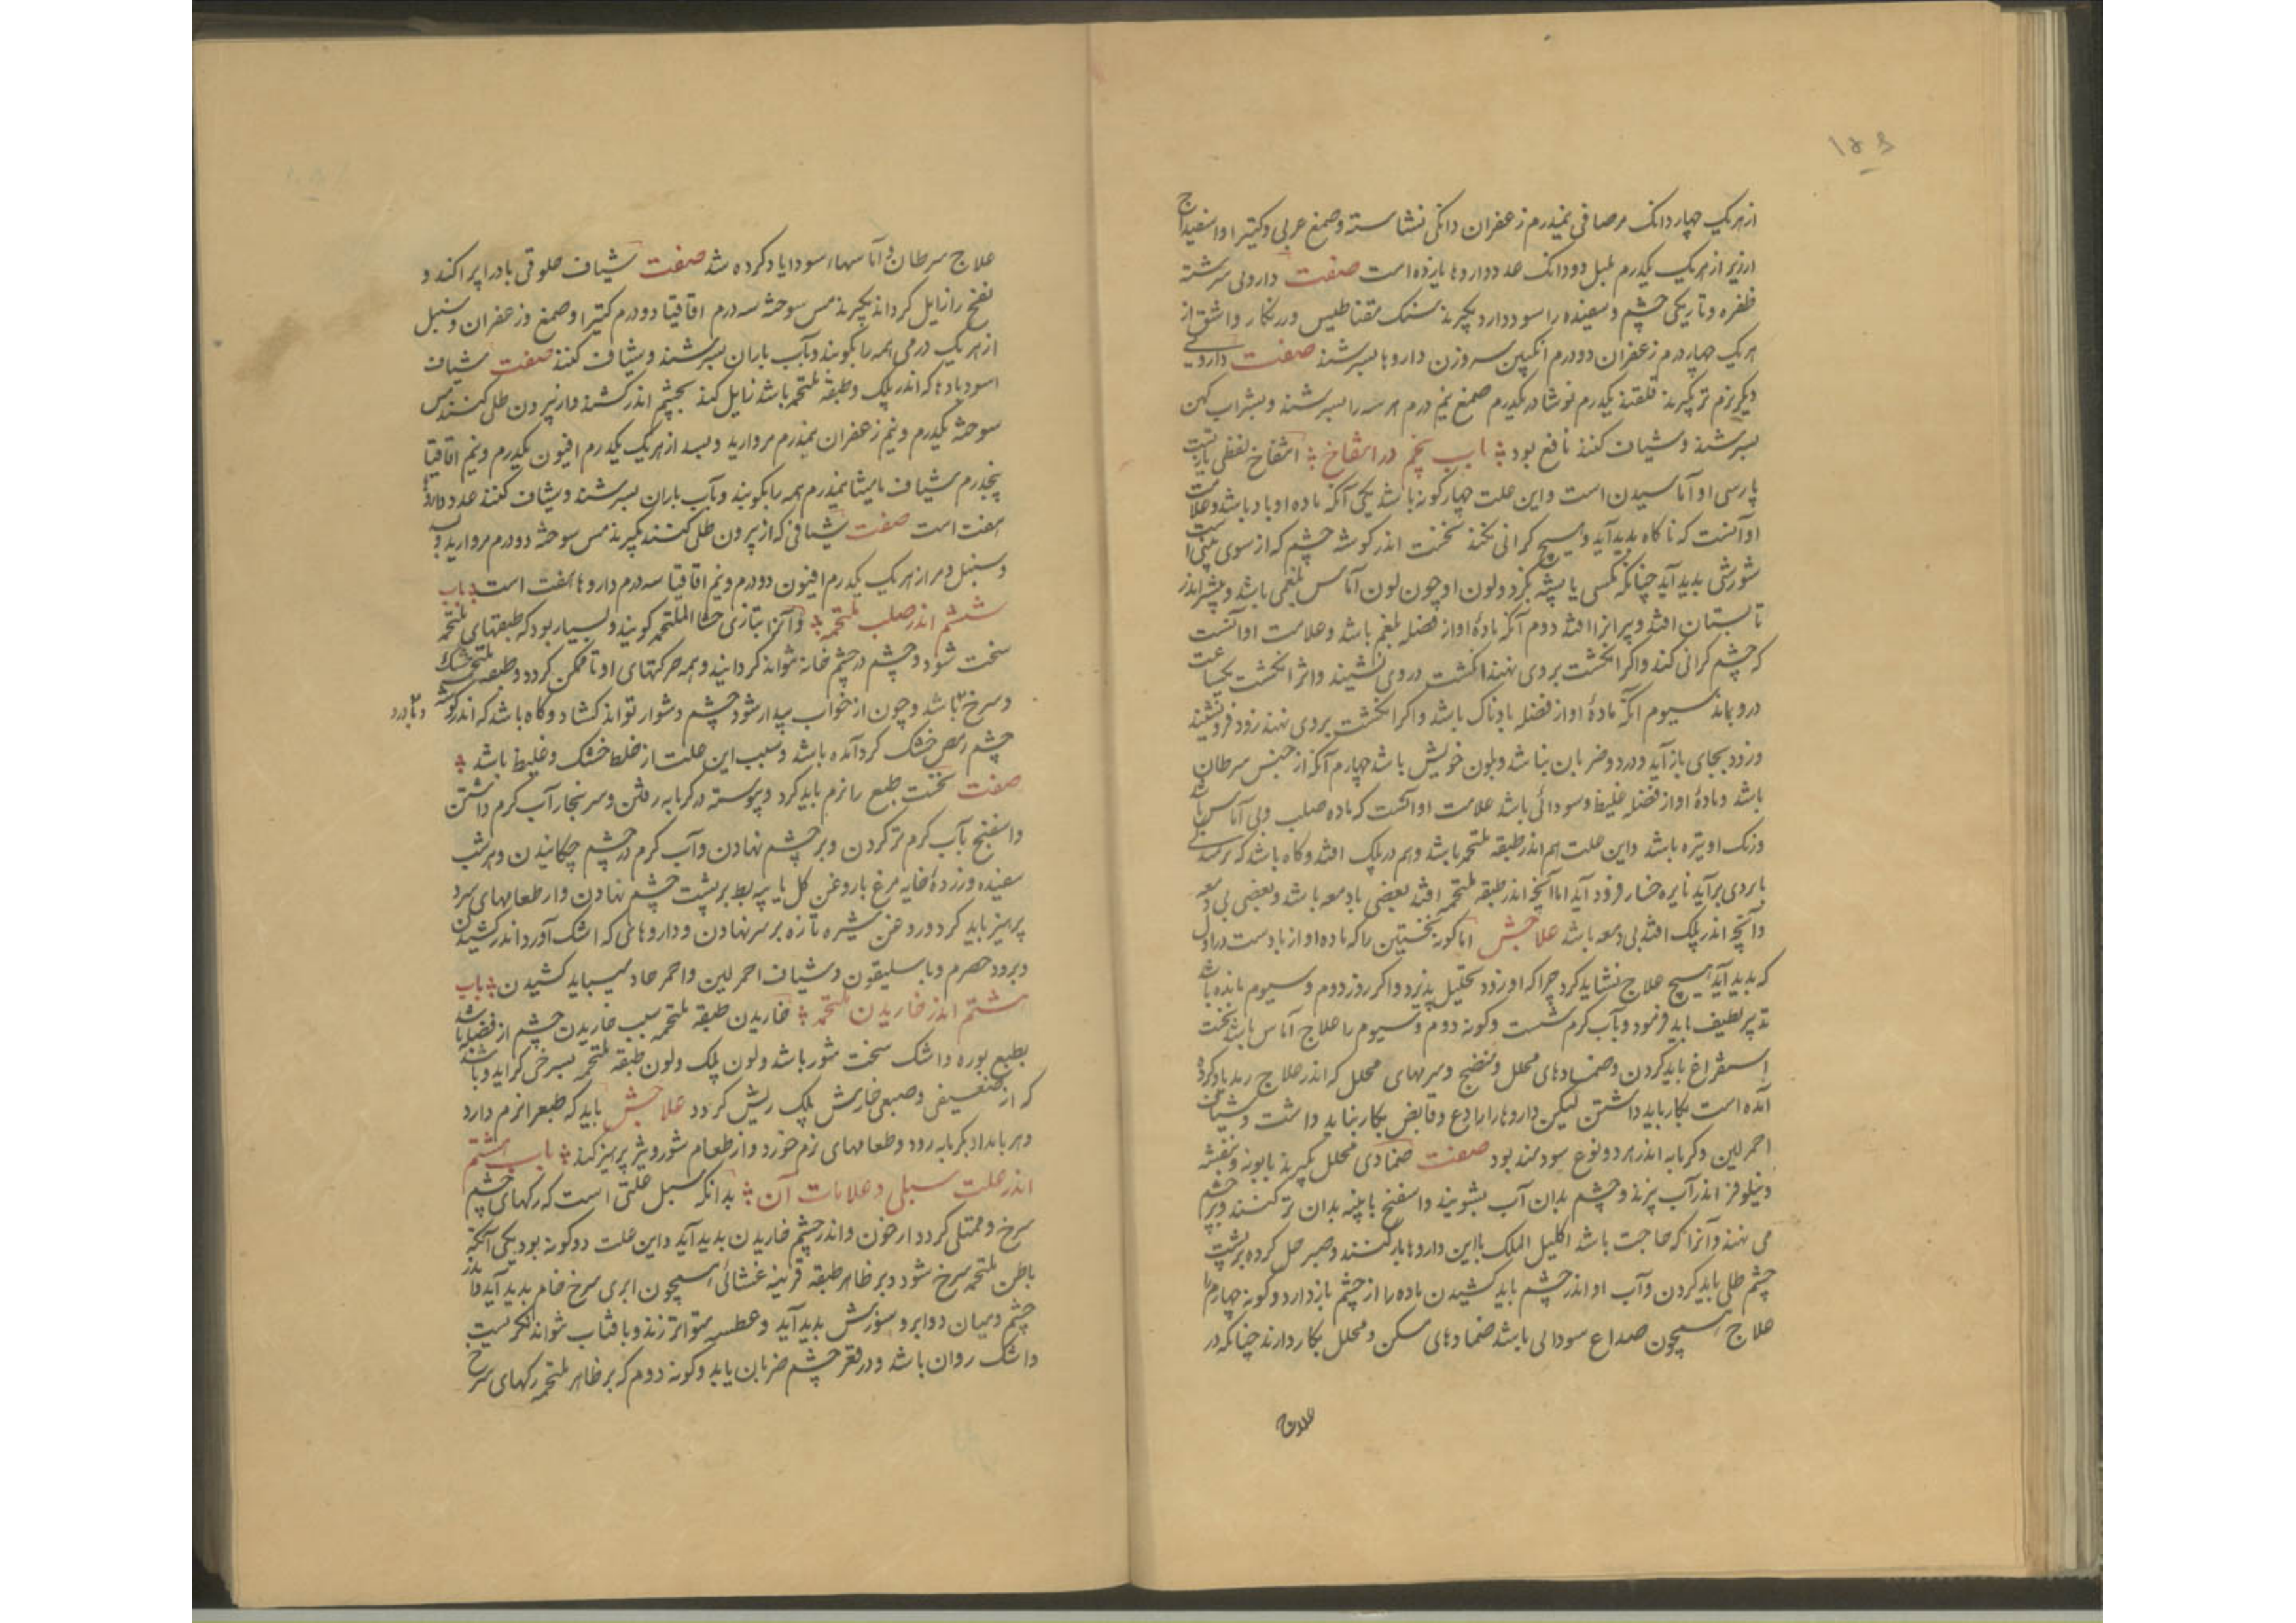 ۱۵۴
از هریک چهار دانک مر صافی نیمدرم زعفران دانکی نشاسته و صمغ عربی و کتیرا و اسفیداج
ارزیز از هریک یکدرم پلپل دودانک عدد داروها یازده است صفت داروئی سرشته
ظفره و تاریکی چشم و سفیده را سود دارد بگیرند سنک مقناطیس و زنکار و اشق از
هریک چهار درم زعفران دودرم انکبین سه وزن داروها بسرشند صفت داروئی
دیکر نرم تر بگیرند قلقند یکدرم نوشادر یکدرم صمغ نیم درم هر سه را بسرشند و بشراب کهن
بسرشند و شیاف کنند نافع بود باب پنجم در انتفاخ انتفاخ لفظی تازیست
پارسی او آماسیدن است و این علت چهار کونه باشد یکی آنکه ماده او باد باشد و علامت
او آنست که ناکاه پدید آید و هیچ کرانی نکند نخست اندر کوشه چشم که از سوی بینی است
شورشی پدید آید چنانکه مکسی یا پشه بگزد و لون او چون لون آماس بلغمی باشد و بیشتر اندر
تابستان افتد و پیرانرا افتد دوم آنکه مادهٔ او از فضله بلغم باشد و علامت او آنست
که چشم کرانی کند و اکر انکشت بروی نهند انکشت دروی نشیند و اثر انکشت یکساعت
درو بماند سیوم آنکه مادهٔ او از فضله بادناک باشد و اکر انکشت بروی نهند زود فرونشیند
و زود بجای باز آید و درد و ضربان نباشد و بلون خویش باشد چهارم آنکه از جنس سرطان
باشد و مادهٔ او از فضله غلیظ و سودائی باشد علامت او آنست که ماده صلب و بی آماس باشد
و رنک او تیره باشد و این علت هم اندر طبقه ملتحمه باشد و هم در پلک افتد و کاه باشد که
بابروی برآید تا بره خسار فرود آید اما آنچه اندر طبقه ملتحمه افتد بعضی با دمعه باشد و بعضی بی دمعه
و آنچه اندر پلک افتد بی دمعه باشد علاجش اما کونه نخستین را که ماده او از بادست در اول
که پدید آید هیچ علاج نشاید کرد چرا که او زود تحلیل پذیرد و اکر روز دوم و سیوم مانده باشد
تدبیر لطیف باید فرمود و بآب کرم شست و کونه دوم و سیوم را علاج آماس باشد نخست
استفراغ باید کردن و ضمادهای محلل و منضج و سرمهای محلل که اندر علاج رمد یاد کرده
آمده است بکار باید داشتن لیکن داروها را رادع و قابض بکار نباید داشت و شیاف
احمر لین و کرمابه اندر هر دو نوع سودمند بود صفت ضمادی محلل بگیرند بابونه و بنفشه
و نیلوفر اندر آب پزند و چشم بدان آب بشویند و اسفنج یا پنبه بدان تر کنند و بر چشم
می نهند و آنرا که حاجت باشد اکلیل الملک بااین داروها یار کنند و صبر حل کرده بر پشت
چشم طلی باید کردن و آب او اندر چشم باید کشیدن ماده را از چشم باز دارد و کونه چهارم را
علاج همچون صداع سودائی باشد ضمادهای مسکن و محلل بکار دارند چنانکه در
علاج
علاج سرطان و آماسهاء سودا یاد کرده شد صفت شیاف حلوقی باد را براکند و
نفخ را زایل کرداند بگیرند مس سوخته سه درم اقاقیا دودرم کتیرا و صمغ و زعفران و سنبل
از هریک درمی همه را بکوبند و بآب باران بسرشند و شیاف کنند صفت شیاف
اسود بادها که اندر پلک و طبقه ملتحمه باشد زایل کند بچشم اندر کشند و از بیرون طلی کنند مس
سوخته یکدرم و نیم زعفران نیمدرم مروارید و بسد از هریک یکدرم افیون یکدرم و نیم اقاقیا
پنجدرم شیاف مامیثا نیمدرم همه را بکوبند و بآب باران بسرشند و شیاف کنند عدد داروها
هفت است صفت شیافی که از بیرون طلی کنند بگیرند مس سوخته دودرم مروارید و
و سنبل و مر از هریک یکدرم افیون دودرم و نیم اقاقیا سه درم داروها هفت است باب
ششم اندر صلب ملتحمه و آنرا بتازی جسا الملتحمه کویند و بسیار بود که طبقهای ملتحمه
سخت شود و چشم در چشم خانه نتواند کردانید و همه حرکتهای او ناممکن کردد و طبقه ملتحمه خشک
و سرخ باشد و چون از خواب بیدار شود چشم دشوار تواند کشاد و کاه باشد که اندر کوشه
و بادرد
چشم رمص خشک کرد آمده باشد و سبب این علت از خلط خشک و غلیظ باشد
صفت نخست طبع را نرم باید کرد و پیوسته در کرمابه رفتن و سر ببخار آب کرم داشتن
و اسفنج بآب کرم تر کردن و بر چشم نهادن و آب کرم در چشم چکانیدن و هر شب
سفیده و زردهٔ خایه مرغ با روغن کل یا پیه بط بر پشت چشم نهادن و از طعامهای سرد
پرهیز باید کرد و روغن شیره تازه بر سر نهادن و داروهائی که اشک آورد اندر کشیدن
و برود حصرم و باسلیقون و شیاف احمر لین و احمر حاد میباید کشیدن باب
هشتم اندر خاریدن ملتحمه خاریدن طبقه ملتحمه سبب خاریدن چشم از فضلها باشد
بطبع بوره و اشک سخت شور باشد و لون پلک و لون طبقه ملتحمه بسرخی کراید و باشد
که از ضعیفی و صعبی خارش پلک ریش کردد علاجش باید که طبع را نرم دارد
و هر بامداد بکرمابه رود و طعامهای نرم خورد و از طعام شور و تیز پرهیز کند باب هشتم
اندر علت سبلی و علامات آن بدانکه سبل علتی است که رکهای چشم
سرخ و ممتلی کردد از خون و اندر چشم خاریدن پدید آید و این علت دو کونه بود یکی آنکه
باطن ملتحمه سرخ شود و بر ظاهر طبقه قرنیه غشائی همچون ابری سرخ فام پدید آید
چشم و میان دو ابرو سوزش پدید آید و عطسه متواتر زند و بافتاب نتواند نکریست
و اشک روان باشد و در قعر چشم ضربان یابد و کونه دوم که بر ظاهر ملتحمه رکهای سرخ